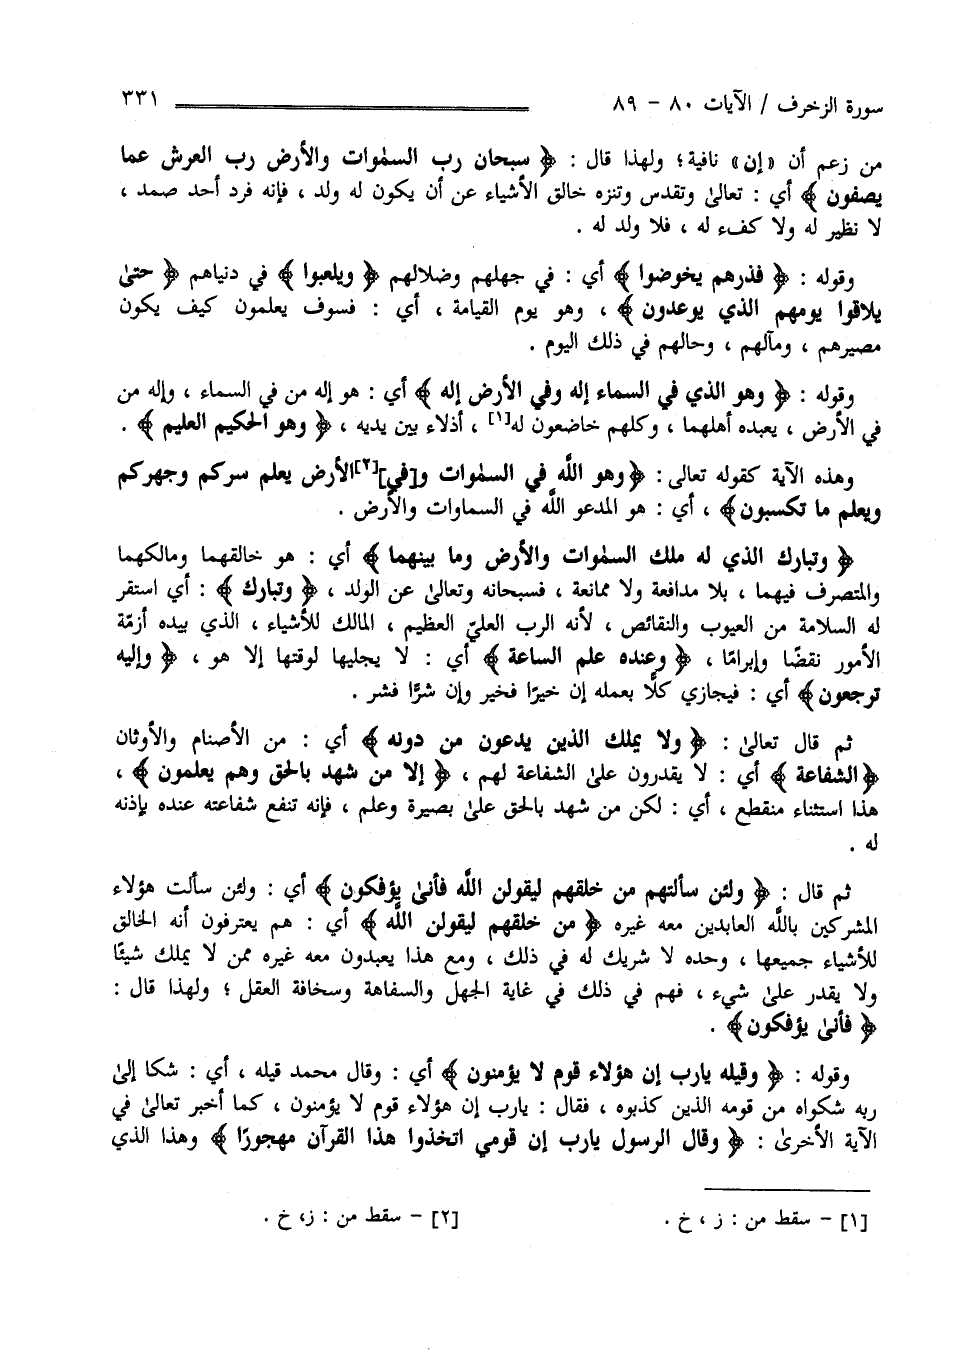 سورة الزخرف / الآيات ٨٠ - ٨٩ ٣٣١
من زعم أن «إن» نافية؛ ولهذا قال : ﴿ سبحان رب السمٰوات والأرض رب العرش عما
يصفون ﴾ أي : تعالىٰ وتقدس وتنزه خالق الأشياء عن أن يكون له ولد ، فإنه فرد أحد صمد ،
لا نظير له ولا كفء له ، فلا ولد له .
وقوله : ﴿ فذرهم يخوضوا ﴾ أي : في جهلهم وضلالهم ﴿ ويلعبوا ﴾ في دنياهم ﴿ حتىٰ
يلاقوا يومهم الذي يوعدون ﴾ ، وهو يوم القيامة ، أي : فسوف يعلمون كيف يكون
مصيرهم ، ومآلهم ، وحالهم في ذلك اليوم .
وقوله : ﴿ وهو الذي في السماء إله وفي الأرض إله ﴾ أي : هو إله من في السماء ، وإله من
في الأرض ، يعبده أهلهما ، وكلهم خاضعون له[١] ، أذلاء بين يديه ، ﴿ وهو الحكيم العليم ﴾ .
وهذه الآية كقوله تعالى : ﴿ وهو اللَّه في السمٰوات و[في][٢]الأرض يعلم سركم وجهركم
ويعلم ما تكسبون ﴾ ، أي : هو المدعو اللَّه في السماوات والأرض .
﴿ وتبارك الذي له ملك السمٰوات والأرض وما بينهما ﴾ أي : هو خالقهما ومالكهما
والمتصرف فيهما ، بلا مدافعة ولا ممانعة ، فسبحانه وتعالىٰ عن الولد ، ﴿ وتبارك ﴾ : أي استقر
له السلامة من العيوب والنقائص ، لأنه الرب العليّ العظيم ، المالك للأشياء ، الذي بيده أزمّة
الأمور نقضًا وإبرامًا ، ﴿ وعنده علم الساعة ﴾ أي : لا يجليها لوقتها إلا هو ، ﴿ وإليه
ترجعون ﴾ أي : فيجازي كلًّا بعمله إن خيرًا فخير وإن شرًّا فشر .
ثم قال تعالىٰ : ﴿ ولا يملك الذين يدعون من دونه ﴾ أي : من الأصنام والأوثان
﴿ الشفاعة ﴾ أي : لا يقدرون علىٰ الشفاعة لهم ، ﴿ إلا من شهد بالحق وهم يعلمون ﴾ ،
هذا استثناء منقطع ، أي : لكن من شهد بالحق علىٰ بصيرة وعلم ، فإنه تنفع شفاعته عنده بإذنه
له .
ثم قال : ﴿ ولئن سألتهم من خلقهم ليقولن اللَّه فأنىٰ يؤفكون ﴾ أي : ولئن سألت هؤلاء
المشركين باللَّه العابدين معه غيره ﴿ من خلقهم ليقولن اللَّه ﴾ أي : هم يعترفون أنه الخالق
للأشياء جميعها ، وحده لا شريك له في ذلك ، ومع هذا يعبدون معه غيره ممن لا يملك شيئًا
ولا يقدر علىٰ شيء ، فهم في ذلك في غاية الجهل والسفاهة وسخافة العقل ؛ ولهذا قال :
﴿ فأنىٰ يؤفكون ﴾ .
وقوله : ﴿ وقيله يارب إن هؤلاء قوم لا يؤمنون ﴾ أي : وقال محمد قيله ، أي : شكا إلىٰ
ربه شكواه من قومه الذين كذبوه ، فقال : يارب إن هؤلاء قوم لا يؤمنون ، كما أخبر تعالىٰ في
الآية الأخرىٰ : ﴿ وقال الرسول يارب إن قومي اتخذوا هذا القرآن مهجورًا ﴾ وهذا الذي
[١] - سقط من : ز ، خ . [٢] - سقط من : ز، خ .